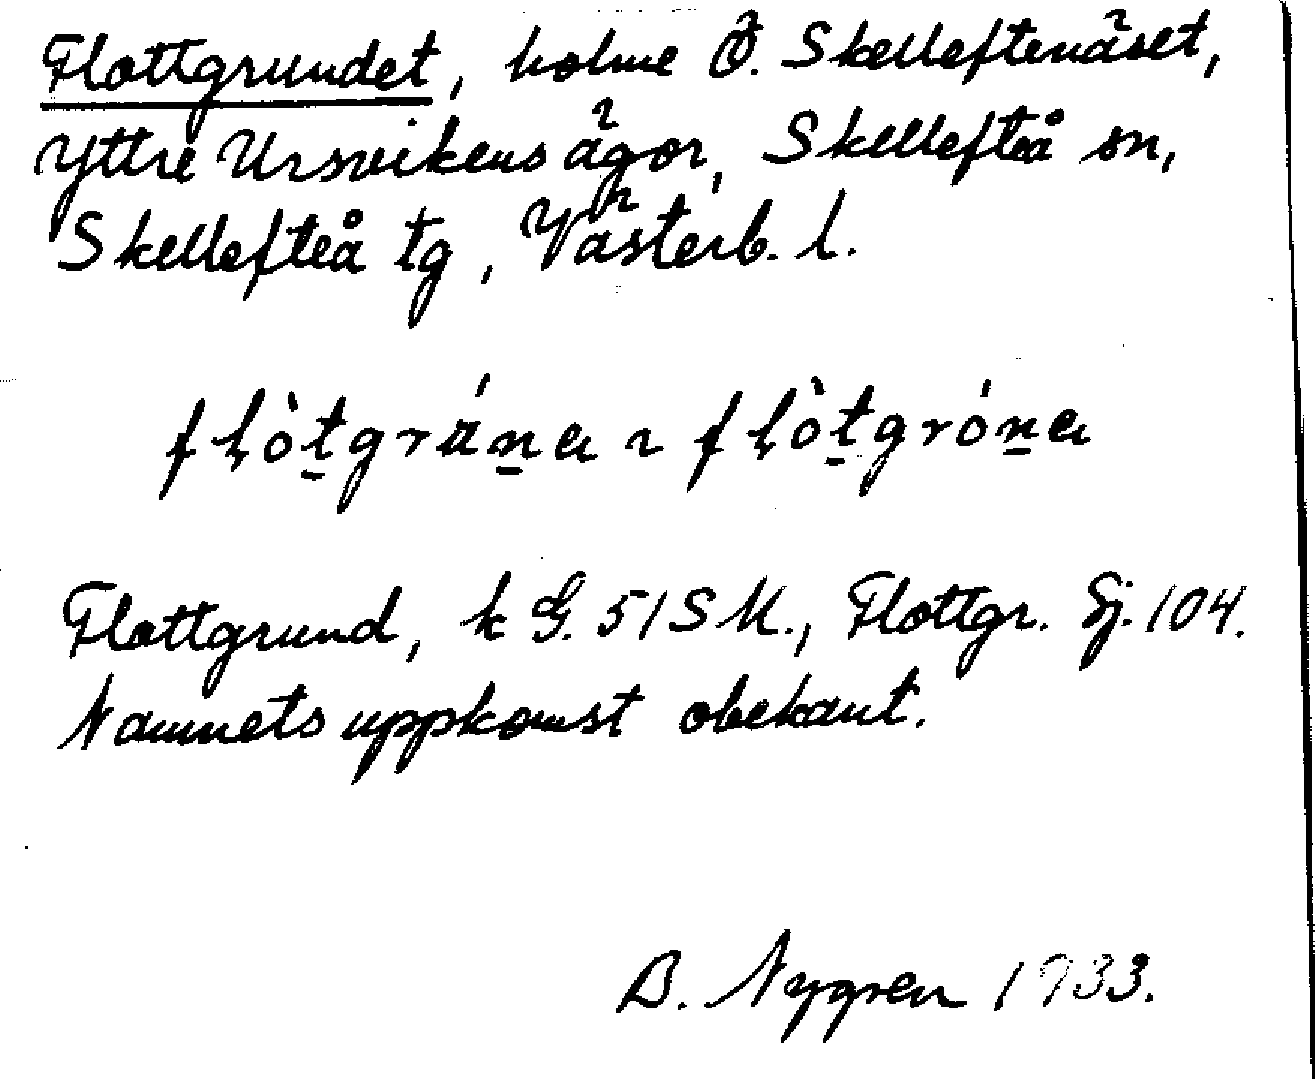 Flottgrundet, holme Ö. Skelleftenäset,
Yttre Ursvikens ägor, Skellefteå sn,
Skellefteå tg, Västerb. l.
flòtgránₑ ~ flòtgrónₑ
Flottgrund, k G. 51 S M., Flottgr. Sj. 104.
Namnets uppkomst obekant.
B. Nygren 1933.